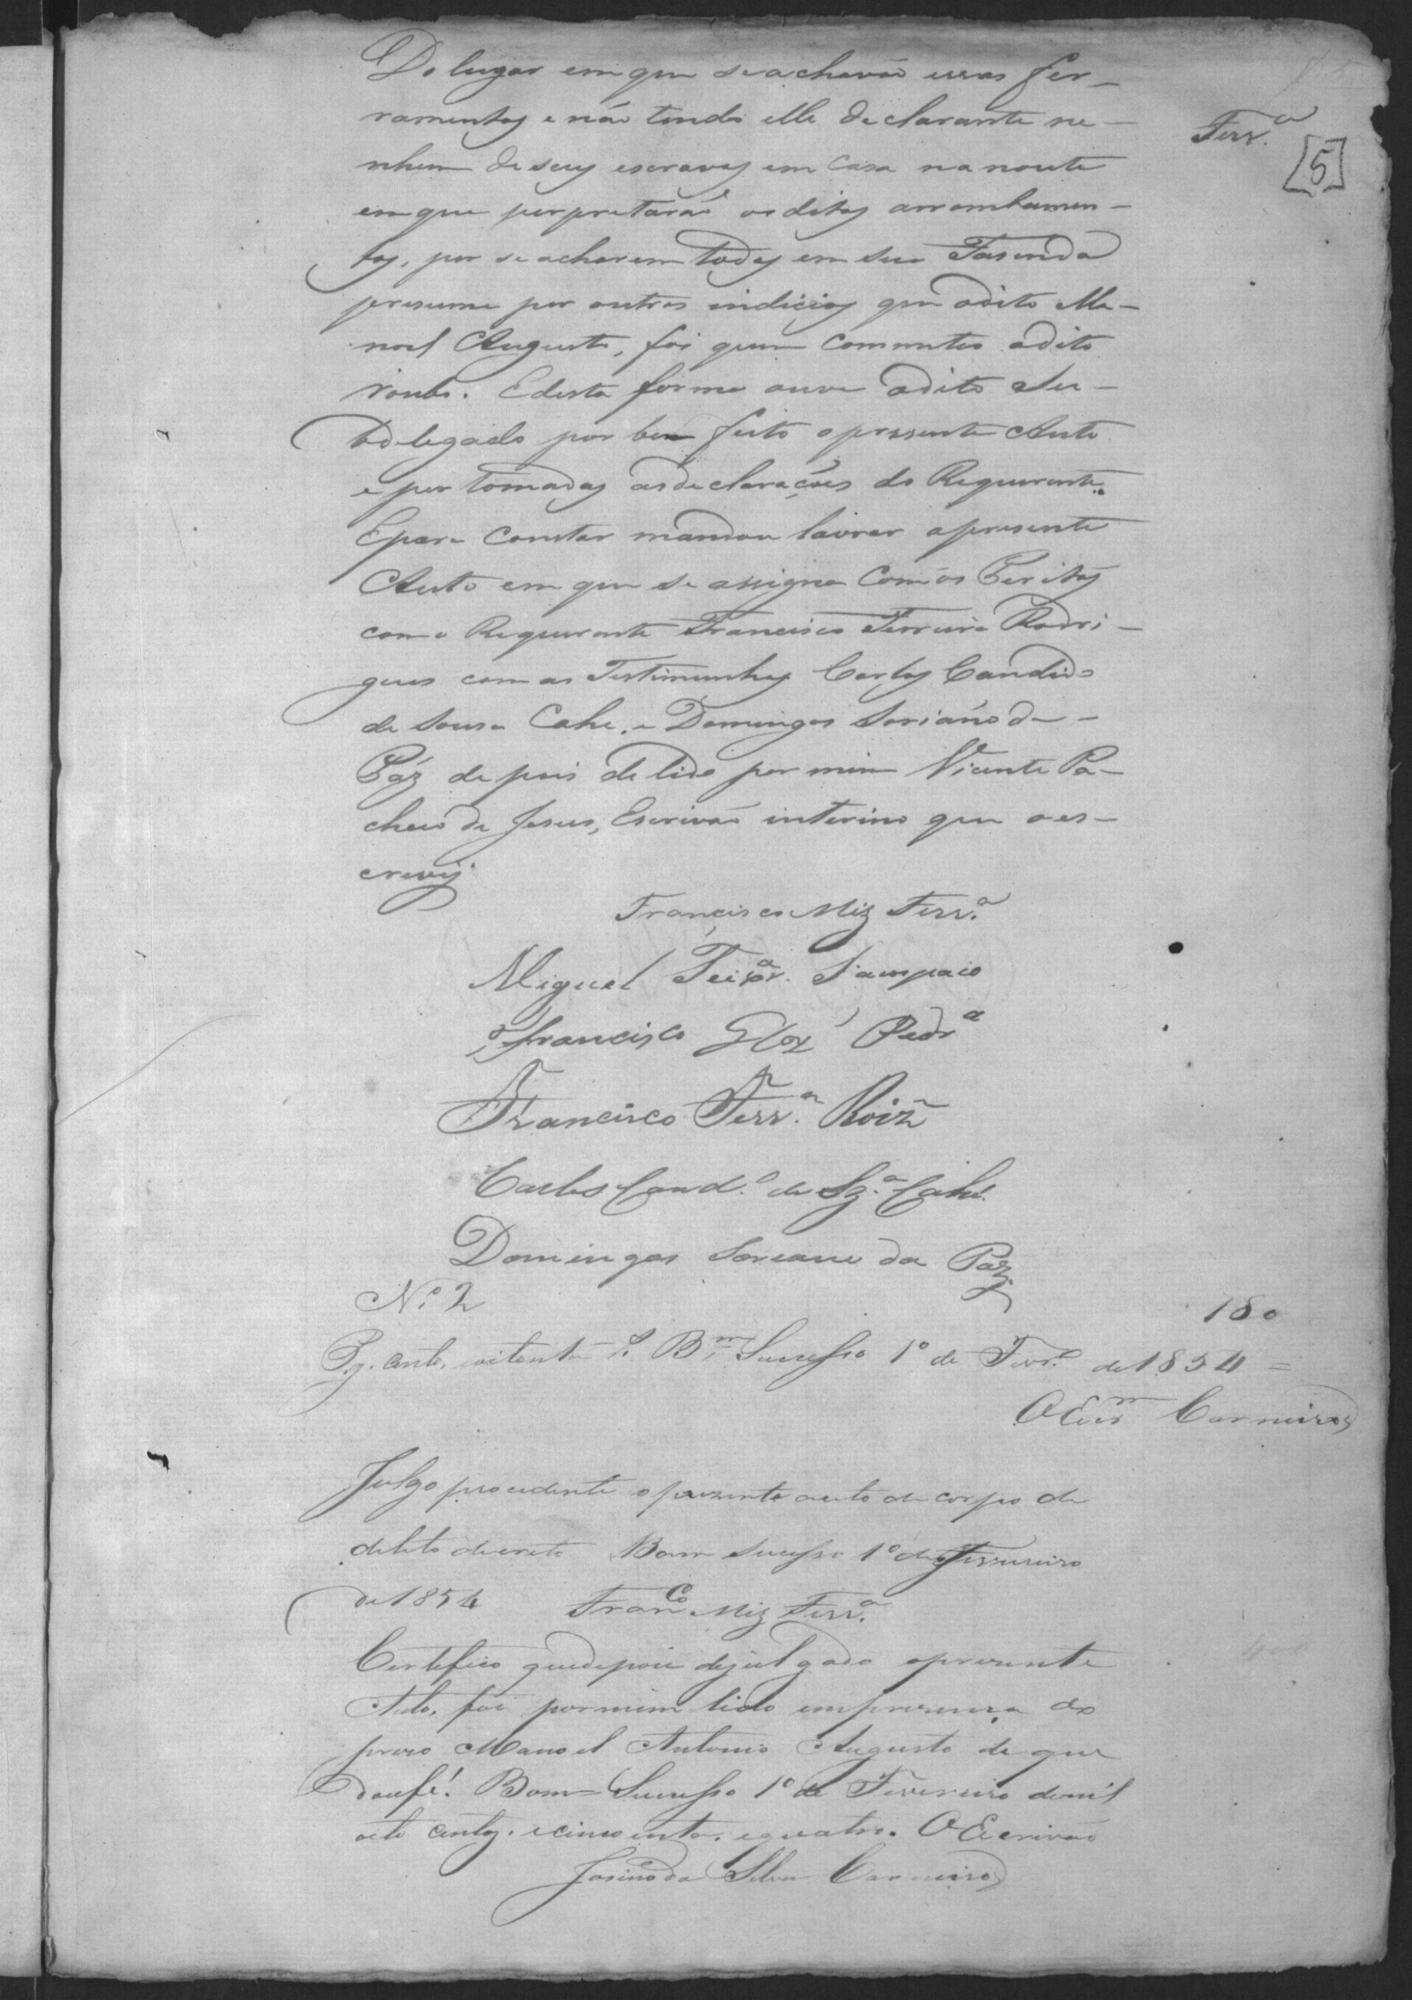 Ferrª
[5]
Do lugar em que se achavão essas fer-
ramentas e não tendo elle declarante ne-
nhum de seus escravos em casa na noute
em que perpretarão os ditos arrombamen-
tos, por se acharem todos em sua Fasenda
presume por outros indicios que o dito Ma-
noel Augusto, foi quem commeteo o dito
roubo. E desta forma ouve o dito Su-
bdelegado por bem feito o presente Auto
e por tomadas as declarações do Requerente.
E para constar mandou lavrar o presente
Auto em que se assigna com os Peritos
com o Requerente Francisco Ferreira Rodri-
gues com as Testimunhas Carlos Candido
de Sousa Cahe, e Domingos Soriano da
Páz depois de lido por mim Vicente Pa-
checo de Jesus, Escrivão interino que o es-
crevij
Francisco Miz Ferrª
Miguel Teixrª Sampaio
Francisco Glz Pedrª
Francisco Ferrª Roiz
Carlos Candº de Szª Cahé
Domingos Soreano da Paz
Nº 2 180
Pg. cento, e oitenta rs. Bm Sucesso 1º de Fevrº de 1854 =
O Escm Carneiro
Julgo procedente o prezente auto de corpo de
delito directo Bom sucesso 1º de Fevereiro
de 1854 Franco Miz Ferrª
Certefico que depois de julgado o prezente
Auto, foi por mim lido em prezença do
prezo Manoel Antonio Augusto de que
dou fé. Bom Sucesso 1º de Fevereiro de mil
oito centos, e cincoenta, e quatro. O Escrivão
da Silva Carneiro